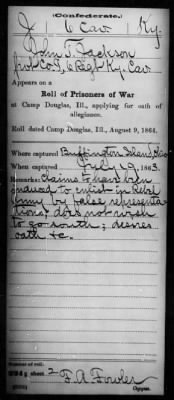 (Confederate.)
J 6 Cav Ky.
John J. Jackson
Pvt Co. I, 6 Regt Ky. Cav
Appears on a
Roll of Prisoners of War
at Camp Douglas, Ill., applying for oath of
allegiance.
Roll dated Camp Douglas, Ill., August 9, 1864.
Where captured Buffington Island, Ohio
When captured July 19, 1863.
Remarks: Claims to have been
induced to enlist in Rebel
Army by false representa
tions; does not wish
to go south; desires
oath &c.
Number of roll:
sheet 2 F. A. Fowler